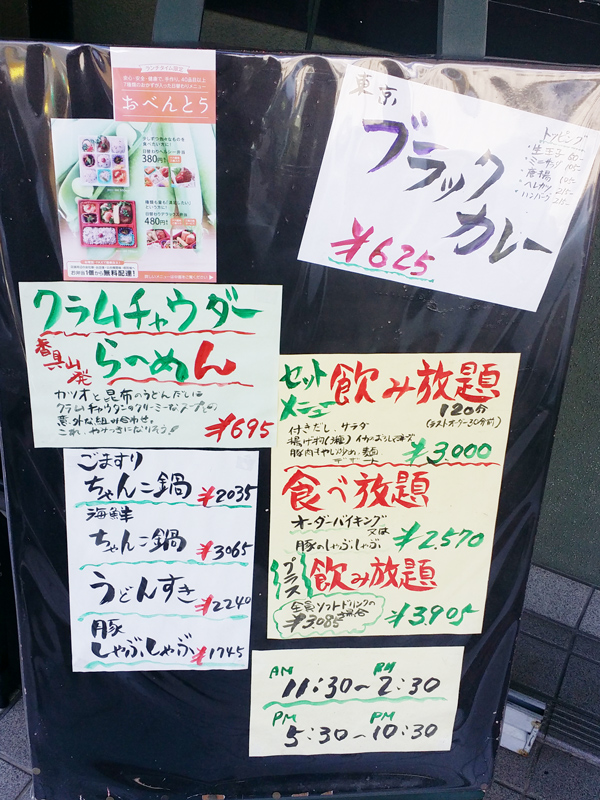 ランチタイム限定
おべんとう
日替わりヘルシー弁当
380円!
日替わりデラックス弁当
480円!
お弁当1個から無料配達!
東京
ブラック
カレー
¥625
トッピング
・生玉子
・ミニサラダ 105-
・唐揚 105-
・ヘレカツ 210-
・ハンバーグ 210-
クラムチャウダー
らーめん
カツオと昆布のうどんだしに
クラムチャウダーのクリーミーなスープの
意外な組み合わせ。
これ、やみつきになりそう!!
¥695
セット
メニュー
飲み放題
120分
(ラストオーダー30分前)
付きだし、サラダ
¥3,000
食べ放題
オーダーバイキング
又は
豚のしゃぶしゃぶ
¥2570
プラス
飲み放題
全員ソフトドリンクの
場合
¥3,085
¥3,905
ごますり
ちゃんこ鍋 ¥2035
海鮮
ちゃんこ鍋 ¥3065
うどんすき ¥2240
豚
しゃぶしゃぶ ¥1745
AM
11:30〜2:30
PM PM
5:30〜10:30